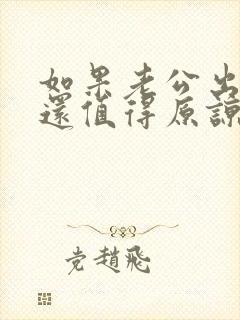 如果老公出
還值得原諒
党趙飛